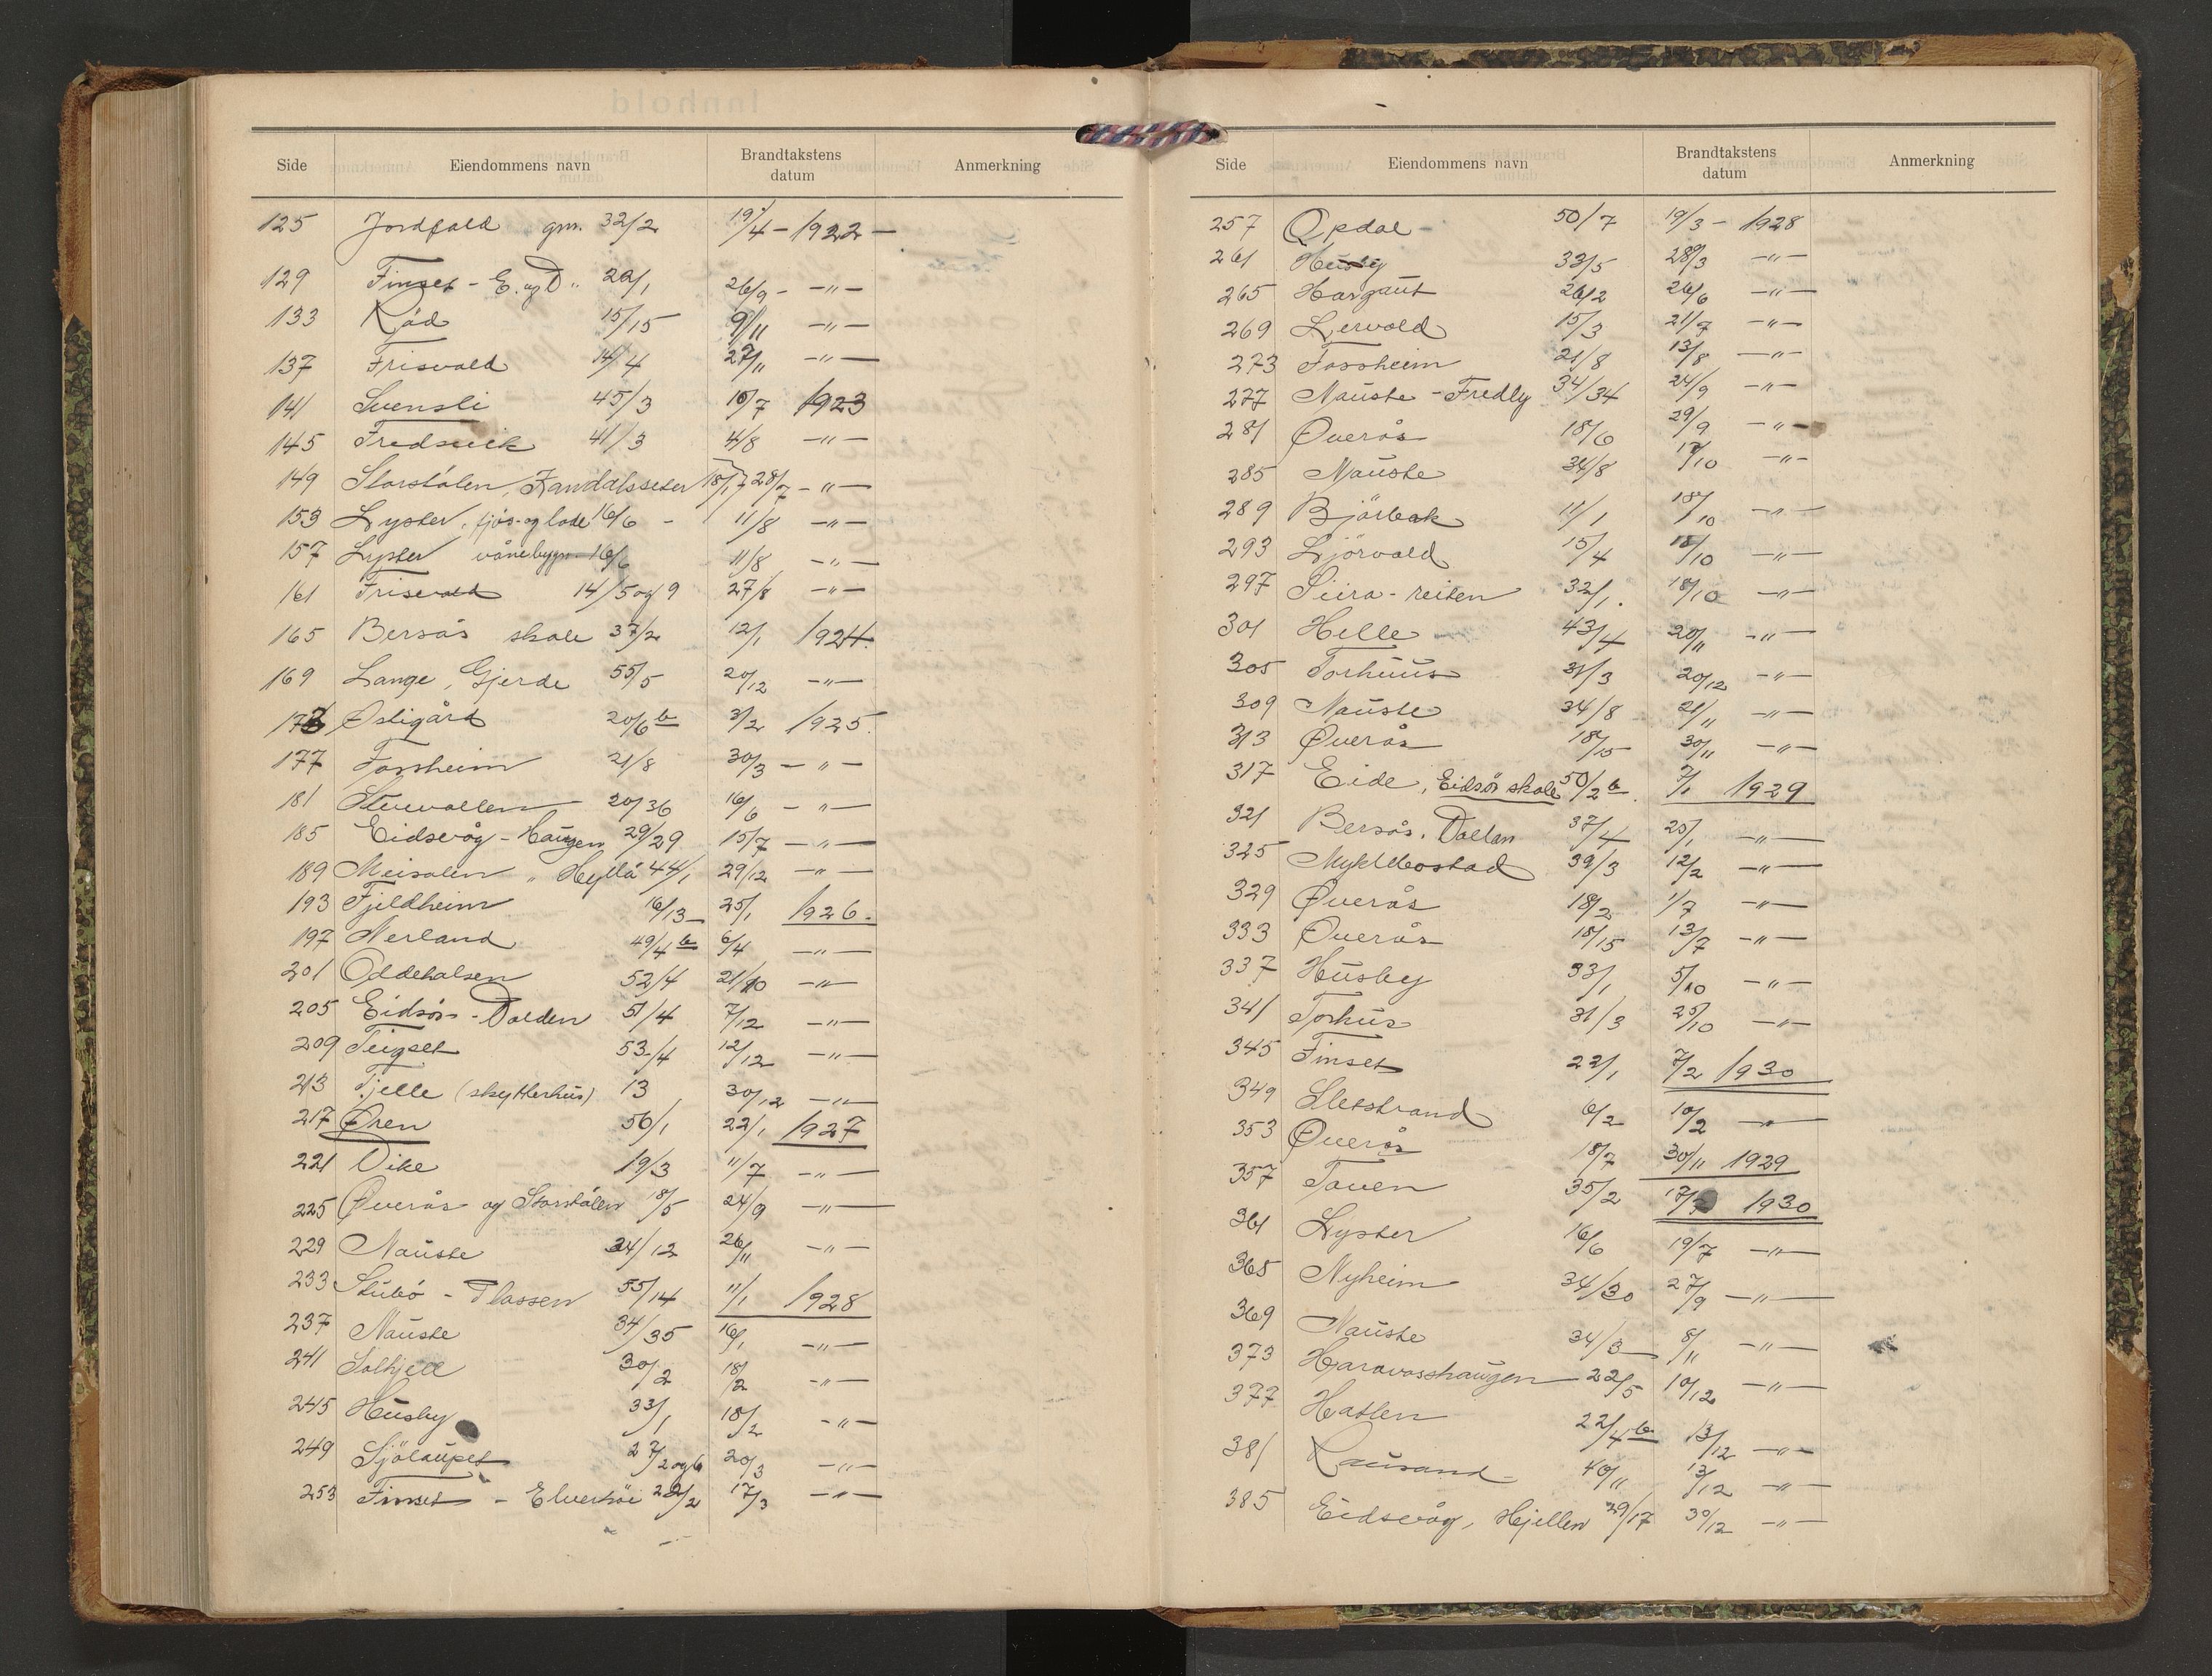 Side Eiendommens navn Brandtakstens datum Anmerkning
125 Jordfald gnr. 32/2 19/4 - 1922 -
129 Finset - E. og D " 22/1 26/9 - -"-
133 Råd 15/15 9/11 -"-
137 Frisvold 14/4 27/11 -"-
141 Svensli 45/3 10/7 1923
145 Fredsvik 41/3 4/8 -"-
149 Storstålen, Zandalsseter 18/1, 7 28/7 -"-
153 Lyster, fjøs- og lade 16/6 - 11/8 -"-
157 Lyster vånebygn. 16/6 11/8 -"-
161 Frisvold 14/5 og 9 27/8 -"-
165 Bersås skole 37/2 12/1 1924.
169 Lange, Gjerde 55/5 20/12 -"-
173 Østigård 20/6 b 3/2 1925.
177 Fossheim 21/8 30/3 - " -
181 Stuevollen 20/36 16/6 - " -
185 Eidsvåg - Haugen 29/29 15/7 -"-
189 Meisalen " Hyllå 44/1 29/12 -"-
193 Fjeldheim 16/13 25/1 1926.
197 Nerland 49/4 b 6/4 -"-
201 Oddehalsen 52/4 21/10 -"-
205 Eidsør - Dalden 51/4 7/12 -"-
209 Teigset 53/4 12/12 -"-
213 Tjelle (skytterhus) 13 30/12 -"-
217 Øren 56/1 22/1 1927
221 Vike 19/3 11/7 -"-
225 Øverås og Storstålen 18/5 24/9 -"-
229 Nauste 34/12 26/11 -"-
233 Stubö - Plassen 55/14 11/1 1928
237 Nauste 34/35 16/1 -"-
241 Solhjell 30/2 18/2 -"-
245 Husby 33/1 18/2 -"-
249 Sjölaupet 27/2 og 6 20/3 -"-
253 Finset - Elverhöi 22/2 17/3 -"-
Side Eiendommens navn Brandtakstens datum Anmerkning
257 Opdal - 50/7 19/3 - 1928
261 Husby 33/5 28/3 -"-
265 Hargaut 26/2 26/6 -"-
269 Lervold 15/3 21/7 -"-
273 Fossheim 21/8 13/8 -"-
277 Nauste - Fredly 34/34 24/9 -"-
281 Øverås 18/6 29/9 -"-
285 Nauste 34/8 17/10 -"-
289 Björbak 11/1 18/10 -"-
293 Ljörvold 15/4 18/10 -"-
297 Siira - reiten 32/1. 18/10 -"-
301 Helle 43/4 20/11 -"-
305 Torhuus 31/3 20/12 -"-
309 Nauste 34/8 21/11 -"-
313 Øverås 18/15 30/11 -"-
317 Eide, Eidsör skole 50/2 b. 7/1 1929
321 Bersås. Dallan 37/4 25/1 -"-
325 Myklebostad 39/3 12/2 -"-
329 Øverås 18/2 1/7 -"-
333 Øverås 18/15 13/7 -"-
337 Husby 33/1 5/10 -"-
341 Torhus 31/3 25/10 -"-
345 Finset 22/1 7/2 1930
349 Sletstrand 6/2 10/2 -"-
353 Øverås 18/7 30/11 1929
357 Toven 35/2 17/ 1930
361 Lyster 16/6 19/7 -"-
365 Nyheim 34/30 27/9 -"-
369 Nauste 34/3 8/11 -"-
373 Haravosshaugen 22/5 10/12 -"-
377 Hatlen 22/4 b 13/12 -"-
381 Rausand - 40/11 13/12 -"-
385 Eidsvåg, Hjellen 29/17 30/12 -"-